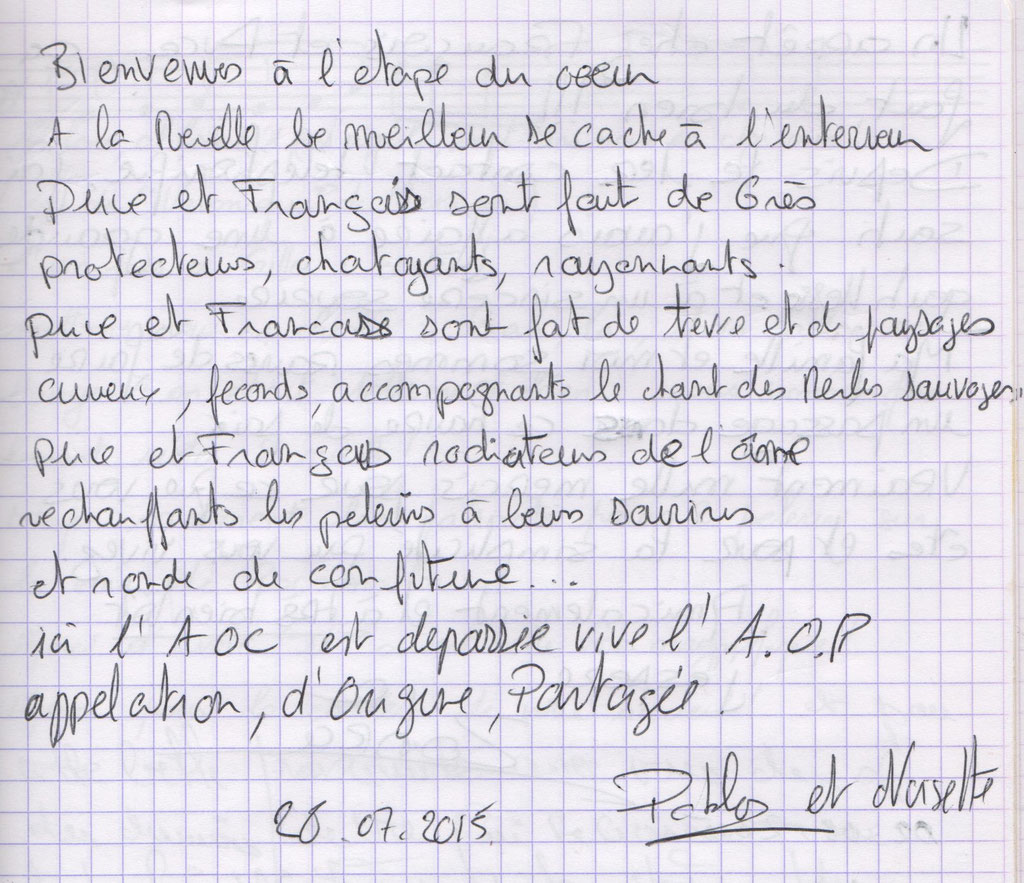 Bienvenus à l'etape du coeur
A la Revelle le meilleur se cache à l'enterieur
Puce et Français sont fait de Grès
protecteurs, chatoyants, rayonnants.
puce et Francais sont fait de terre et d paysages
curieux, feconds, accompagnants le chant des Merles sauvages.
puce et Français radiateurs de l'âme
rechauffants les pelerins à leurs sourires
et ronde de confiture...
ici l'AOC est depassée vive l'A.O.P
appelation, d'Origine, Partagée.
Pablos et Noisette
26.07.2015.